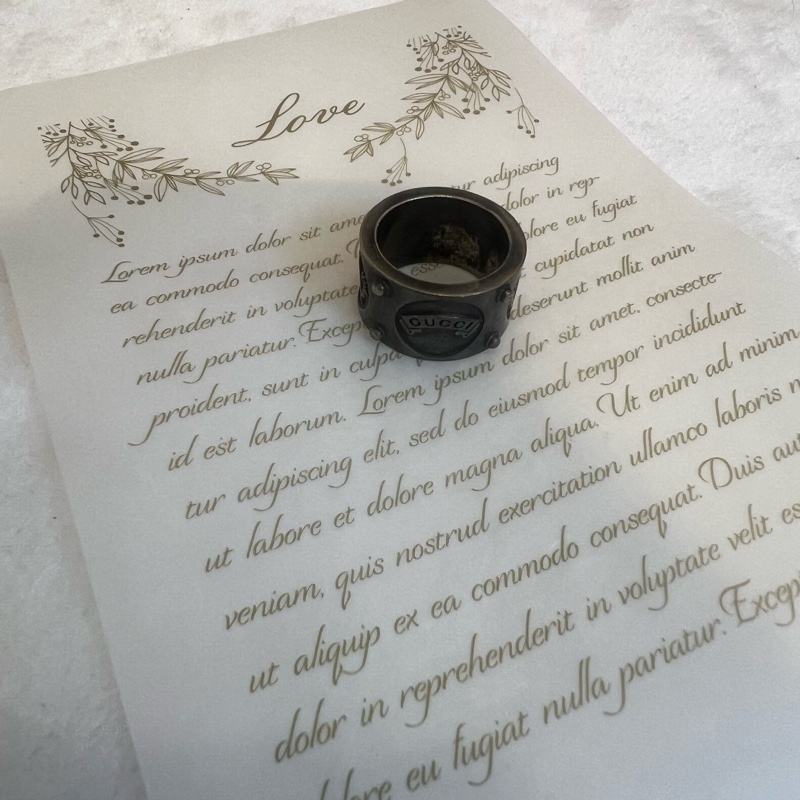 Love
Lorem ipsum dolor sit ame tur adipiscing
ea commodo consequat. dolor in rep-
rehenderit in voluptate esse olore eu fugiat
nulla pariatur. Excep cupidatat non
proident, sunt in culpa deserunt mollit anim
id est laborum. Lorem ipsum dolor sit amet, consecte-
tur adipiscing elit, sed do eiusmod tempor incididunt
ut labore et dolore magna aliqua. Ut enim ad minim
veniam, quis nostrud exercitation ullamco laboris
ut aliquip ex ea commodo consequat. Duis au
dolor in reprehenderit in voluptate velit es
dolore eu fugiat nulla pariatur. Excep
GUCCI